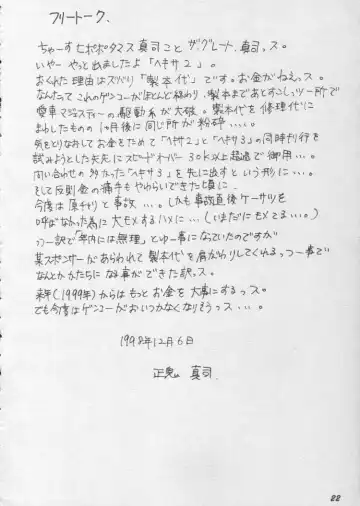 フリートーク.
ちゃーす ヒポポタマス真司こと ザ・グレート真司っス。
いやー やっと出ましたよ「ヘキサ2」。
おくれた理由はズバリ「製本代」です。お金がねぇっス。
なんたって これのゲンコーがほとんど終わり、製本まであとすこしっツー所で
愛車マジェスティーの駆動系が大破。製本代を修理代に
まわしたものの 1ヶ月後に同じ所が粉砕...。
気をとりなおして お金をためて「ヘキサ2」と「ヘキサ3」の同時刊行を
試みようとした矢先に スピードオーバー 30k以上超過で御用...。
問い合わせの多かった「ヘキサ3」を先に出すという形に...。
そして反則金の痛手もやわらいできた頃に、
今度は原チャリと事故...。しかも事故直後ケーサツを
呼ばなかった為に大モメするハメに...(いまだにモメてる...。)
っつー訳で「年内には無理」とゆー事になっていたのですが
某スポンサーがあらわれて 製本代を肩がわりしてくれるっつー事で
なんとかかたちになる事ができた訳っス。
来年(1999年)からはもっとお金を大事にするっス。
でも今度はゲンコーがおいつかなくなりそうっス...。
1998年12月6日
正鬼 真司
22